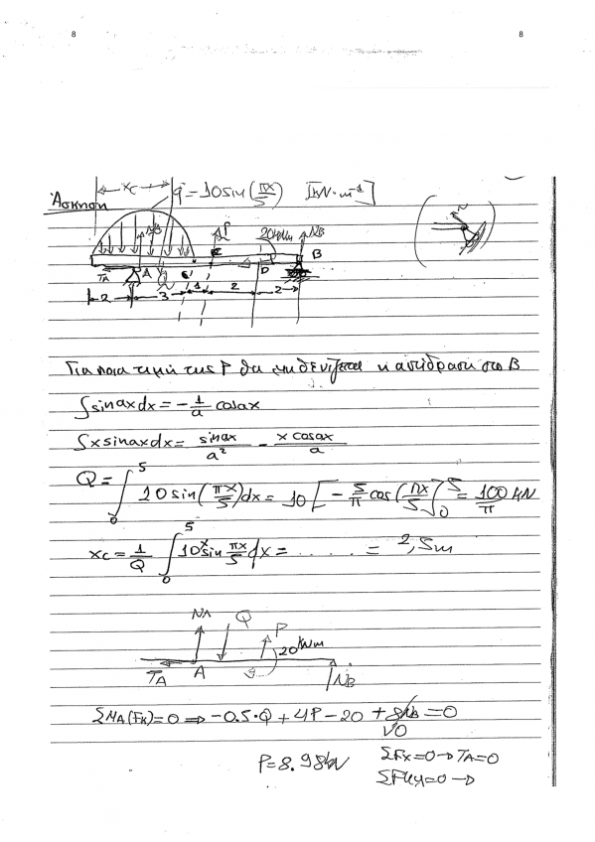 8 8
xc q = 10sin(πx/5) [kN·m⁻¹]
Άσκηση
P 20kNm NB
TA A D B
2 3 1 2 2
Για ποια τιμή της P θα μηδενίζεται η αντίδραση στο B
∫sinaxdx = -1/a cosax
∫xsinaxdx = sinax/a² - xcosax/a
Q = ∫₀⁵ 10sin(πx/5)dx = 10[-5/π cos(πx/5)]₀⁵ = 100/π kN
xc = 1/Q ∫₀⁵ 10xsin πx/5 dx = ...... = 2,5m
NA Q P
20kNm
TA A NB
ΣMA(Fk)=0 ⇒ -0.5·Q + 4P - 20 + 8NB = 0
P = 8.98kN ΣFx=0 → TA=0
ΣFky=0 →